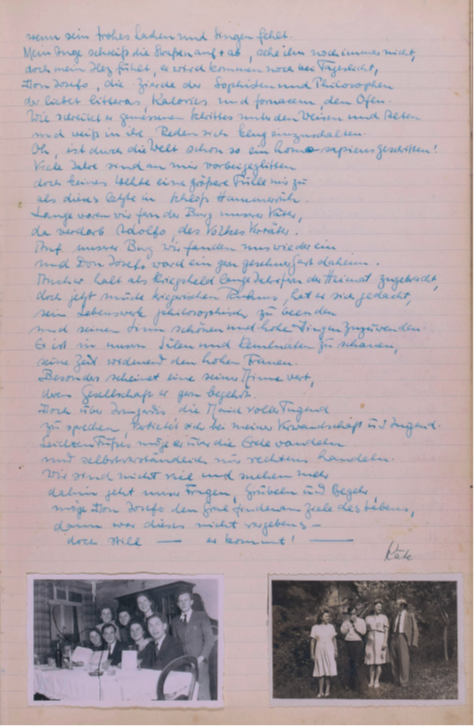 wenn sein frohes Lachen und Singen fehlt.
Mein Auge schweift die Straßen auf + ab, sehe ihn noch immer nicht,
doch mein Herz fühlt, er wird kommen noch bei Tageslicht,
Don Josefo, die Zierde der Sophisten und Philosophen
der liebet litteras, und fornacem, den Ofen.
Wie er Schrittes unter den Weisen und
und weiß in ihr Reden sich klug einzuschalten.
Oh, ist durch die Welt schon so ein homo sapiens geschritten!
Viele Jahre sind an mir vorbeigeglitten
doch keines brachte eine größere Fülle mir zu
als dieses letzte in Schloß
Lange waren wir fern der Burg unserer Väter,
da verdarb Adolfo des Volkes Verräter.
Auf unserer Burg wir fanden uns wieder ein
und Don Josefo ward ein gern gesehener Gast daheim.
hat als Kriegsheld lange Jahre fern der Heimat zugebracht,
doch jetzt müde kriegerischen Ruhms, hat er sich gedacht,
sein Lebenswerk philosophisch zu beenden
und seinen Sinn schönen und hohen Dingen zuzuwenden.
Er ist in unsern Sälen und Kemenaten zu schauen,
seine Zeit widmend den hohen Frauen.
Besonders scheinet eine seiner Minne wert,
deren Gesellschaft er gern begehrt.
Doch über Irmgardis die Maid voller Tugend
zu sprechen sich bei meiner Verwandtschaft und Jugend.
Leichten Fußes möge er über die Erde wandeln
und selbstverständlich nur rechtens handeln.
Wir sind nicht viel und mehr
dahin geht unser Fragen, Grübeln und Begehr,
möge Don Josefo den Gral finden am Ziele des Lebens,
dann war dieses nicht vergebens –
doch still — er kommt! —
Käte